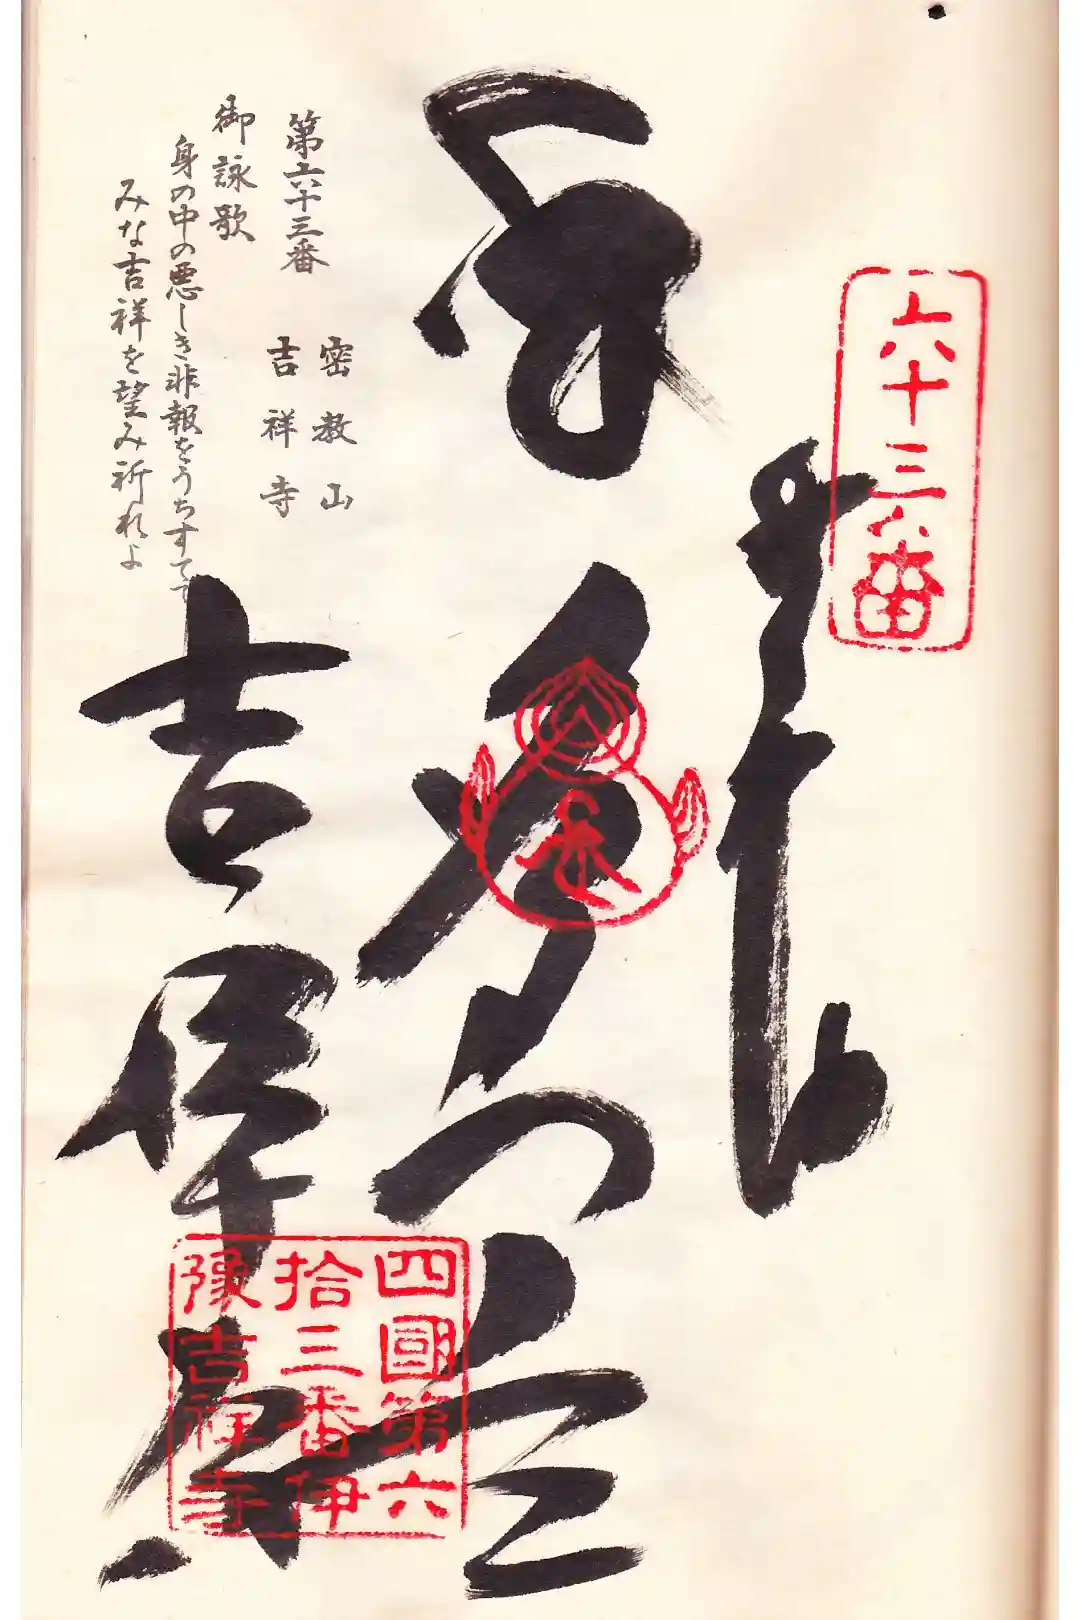 六十三番
奉納
吉祥寺
第六十三番
密教山
吉祥寺
御詠歌
身の中の悪しき非報をうちすてて
みな吉祥を望み祈れよ
四國第六
拾三番伊
豫吉祥寺